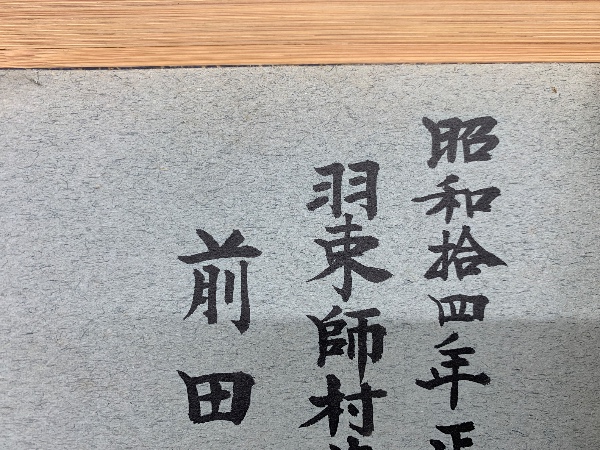 昭和拾四年正
羽束師村
前田